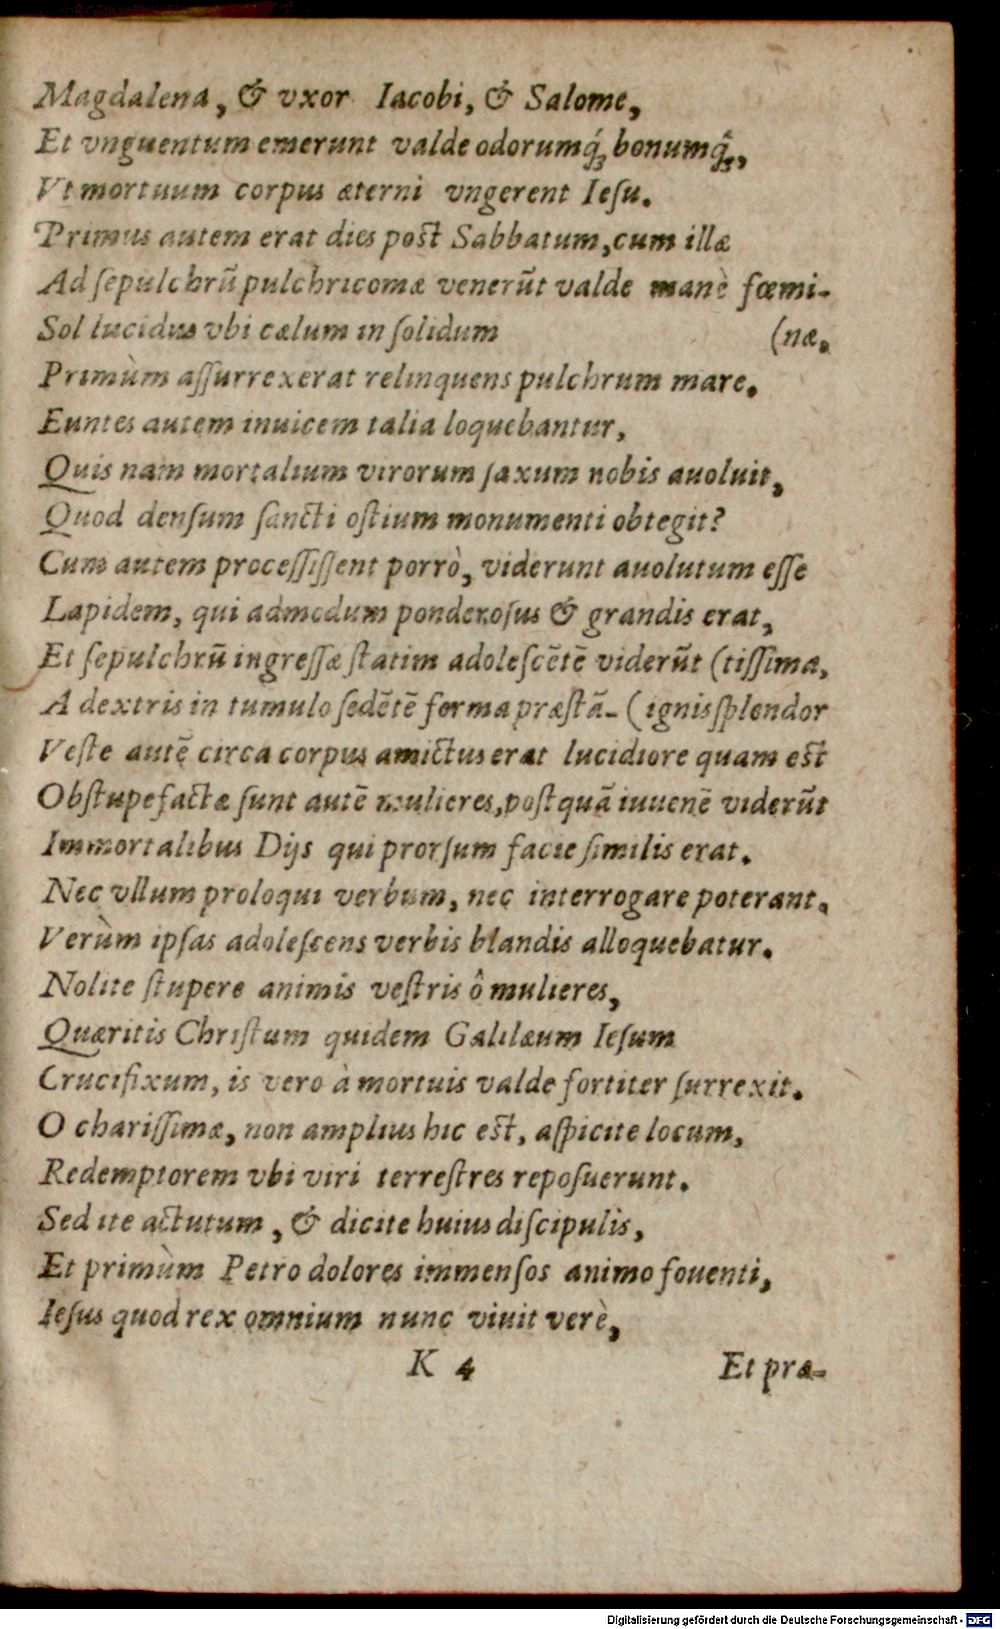 Magdalena, & vxor Iacobi, & Salome,
Et vnguentum emerunt valde odorumq́ꝫ bonumq́ꝫ,
Vt mortuum corpus æterni vngerent Ieſu.
Primus autem erat dies poſt Sabbatum, cum illæ
Ad ſepulchrū pulchricomæ venerūt valde manè fœmi-
Sol lucidus vbi cælum in ſolidum (næ.
Primùm aſſurrexerat relinquens pulchrum mare.
Euntes autem inuicem talia loquebantur,
Quis nam mortalium virorum ſaxum nobis auoluit,
Quod denſum ſancti oſtium monumenti obtegit?
Cum autem proceſſiſſent porrò, viderunt auolutum eſſe
Lapidem, qui admodum ponderoſus & grandis erat,
Et ſepulchrū ingreſſæ ſtatim adoleſcētē viderūt (tiſſima,
A dextris in tumulo ſedētē forma præſtā- (ignis ſplendor
Veſte autē circa corpus amictus erat lucidiore quam eſt
Obſtupefactæ ſunt autē mulieres, poſtquā iuuenē viderūt
Immortalibus Dijs qui prorſum facie ſimilis erat.
Nec vllum proloqui verbum, nec interrogare poterant.
Verùm ipſas adoleſcens verbis blandis alloquebatur.
Nolite ſtupere animis veſtris ô mulieres,
Quæritis Chriſtum quidem Galilæum Ieſum
Crucifixum, is vero à mortuis valde fortiter ſurrexit.
O chariſſimæ, non amplius hic eſt, aſpicite locum,
Redemptorem vbi viri terreſtres repoſuerunt.
Sed ite actutum, & dicite huius diſcipulis,
Et primùm Petro dolores immenſos animo fouenti,
Ieſus quod rex omnium nunc viuit verè,
K 4 Et præ-
Digitalisierung gefördert durch die Deutsche Forschungsgemeinschaft - DFG